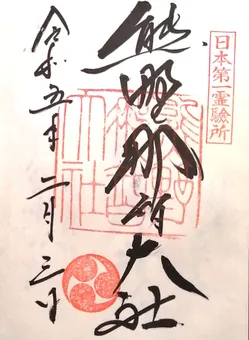 日本第一霊験所
熊野那智大社
令和五年二月三日